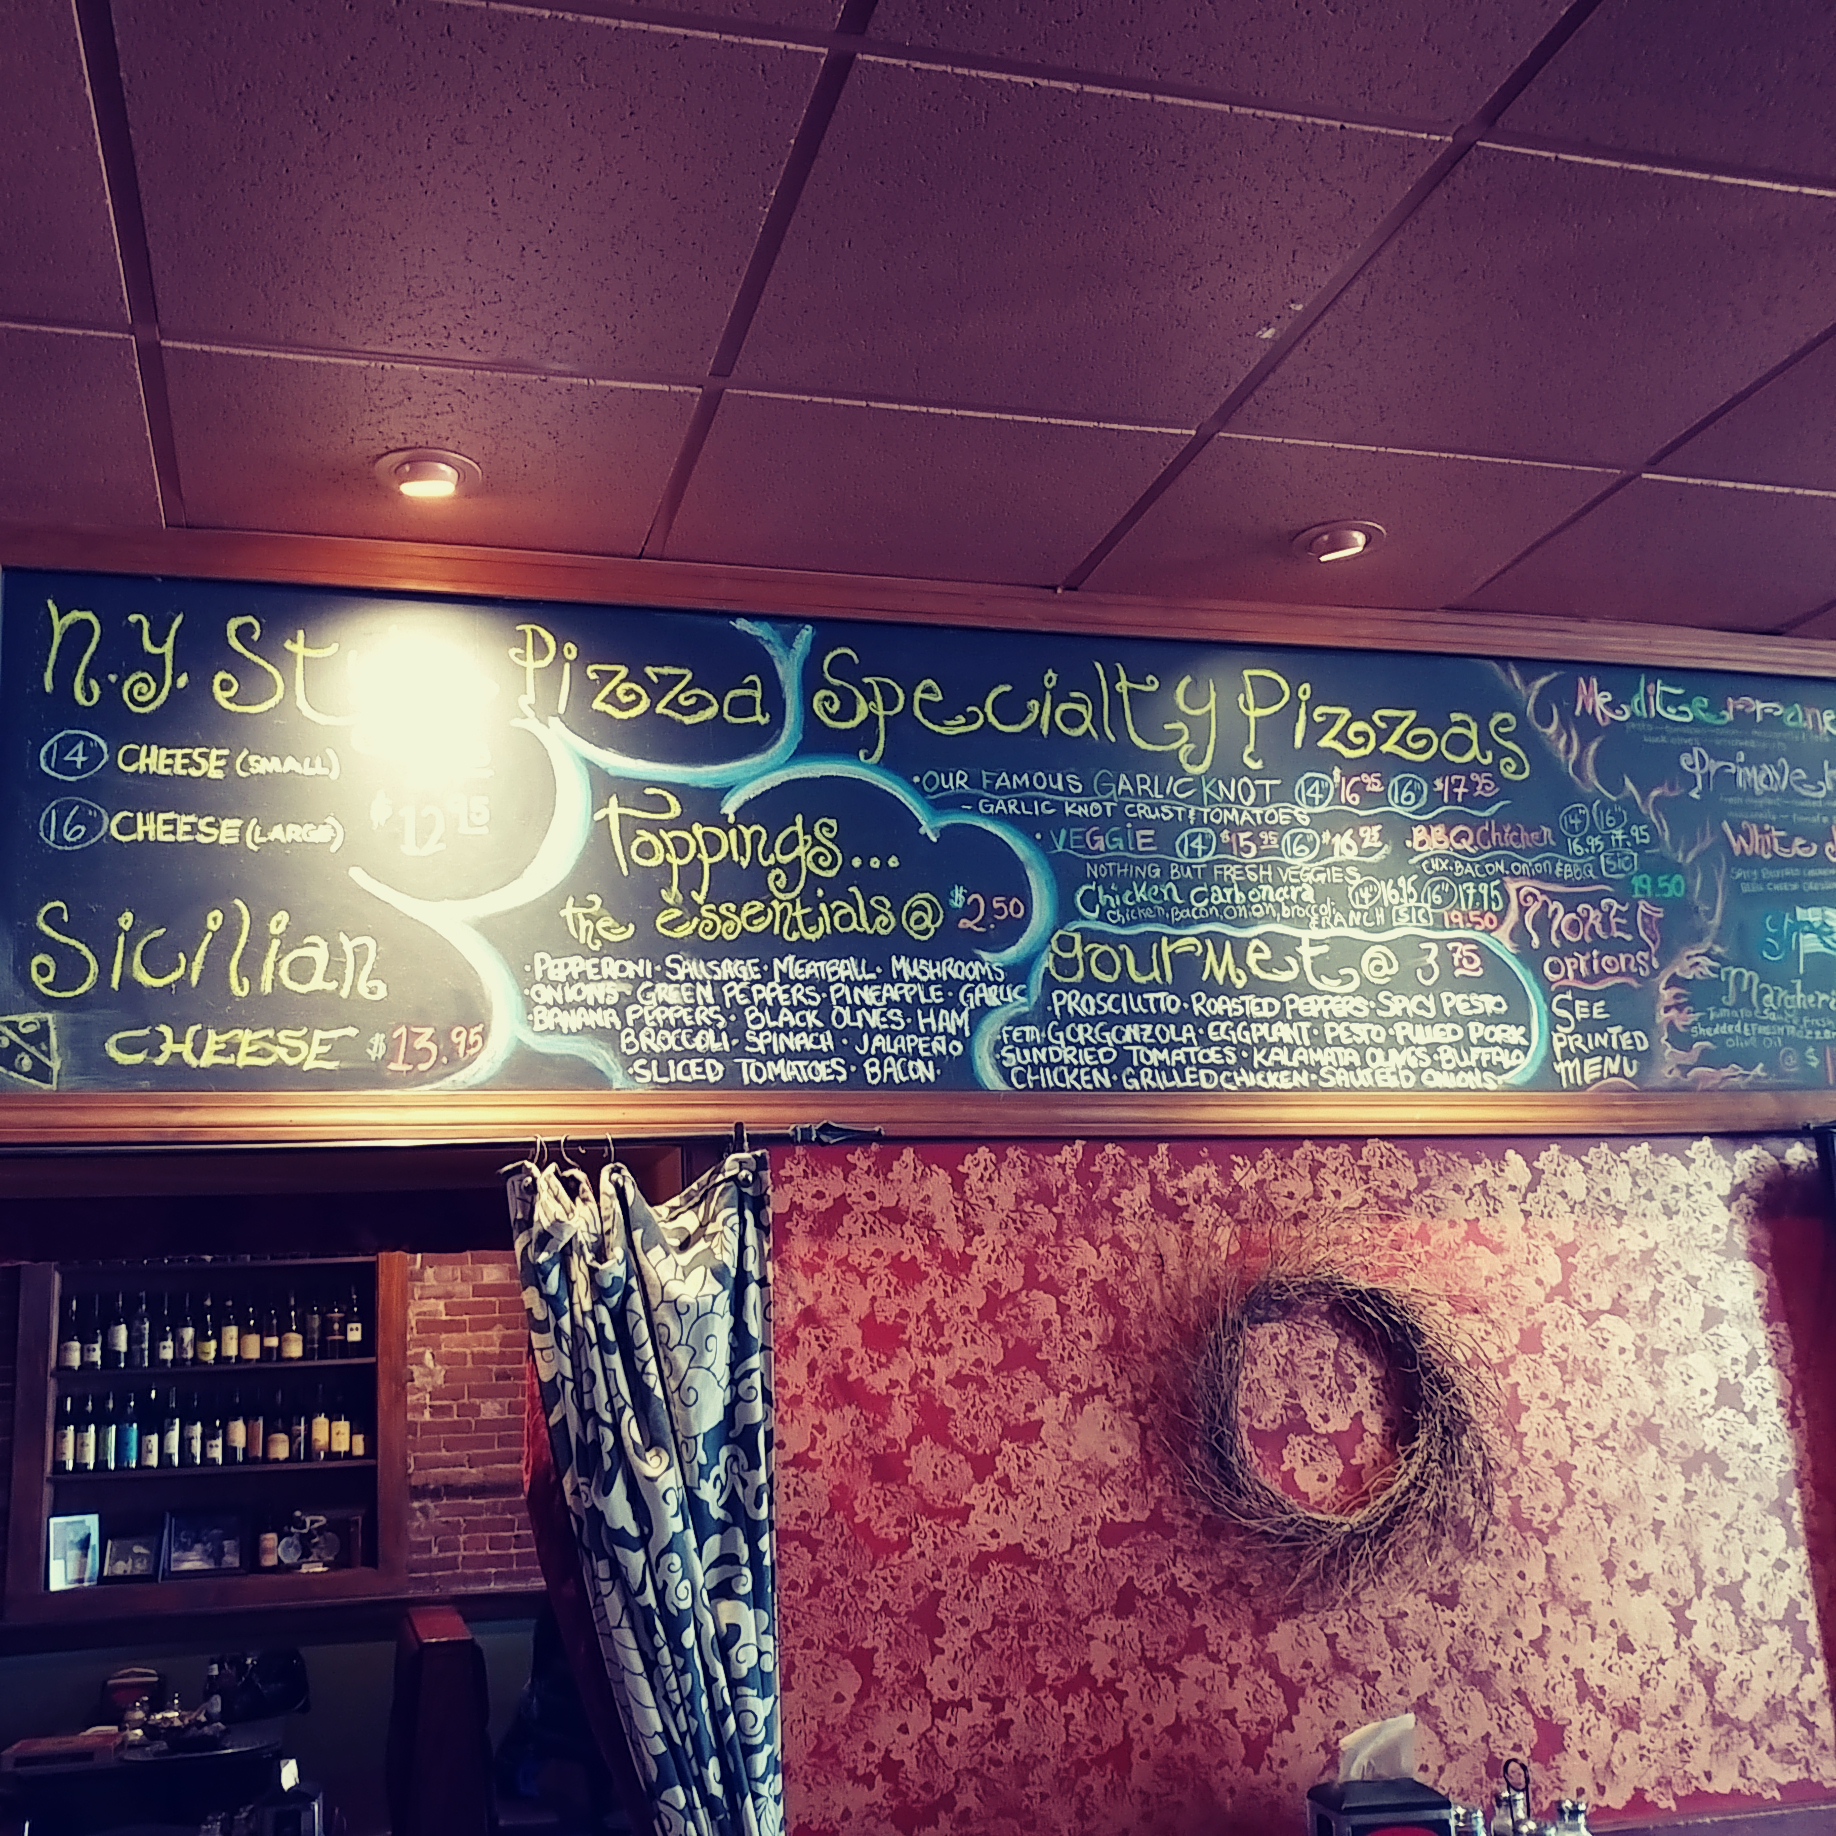 N.Y. Pizza
14" CHEESE (SMALL)
16" CHEESE (LARGE) $12.
Sicilian
CHEESE $13.95
Toppings...
the Essentials @ $2.50
·PEPPERONI·SAUSAGE·MEATBALL·MUSHROOMS
·ONIONS·GREEN PEPPERS·PINEAPPLE·GARLIC
·BANANA PEPPERS·BLACK OLIVES·HAM
BROCCOLI·SPINACH·JALAPEÑO
·SLICED TOMATOES·BACON·
Specialty Pizzas
·OUR FAMOUS GARLIC KNOT 14" $16.95 16" $17.95
-GARLIC KNOT CRUST & TOMATOES
·VEGGIE 14" $15.95 16" $16.95
NOTHING BUT FRESH VEGGIES
·BBQ Chicken 14" 16" 16.95 17.95
CHX. BACON. ONION & BBQ SIC 19.50
Chicken Carbonara 14" 16.95 16" 17.95
Chicken, Bacon, Onion, broccoli
RANCH SIC 19.50
gourmet @ 3.75
PROSCIUTTO·ROASTED PEPPERS·SPICY PESTO
·FETA·GORGONZOLA·EGGPLANT·PESTO·PULLED PORK
·SUNDRIED TOMATOES·KALAMATA OLIVES·BUFFALO
CHICKEN·GRILLED CHICKEN·SAUTEED ONIONS·
MORE
OPTIONS
SEE
PRINTED
MENU
Mediterrane
Primave
White
Margher
Tomato Sauce Fresh
Shedded & Fresh Mozzar
Olive Oil
@ $